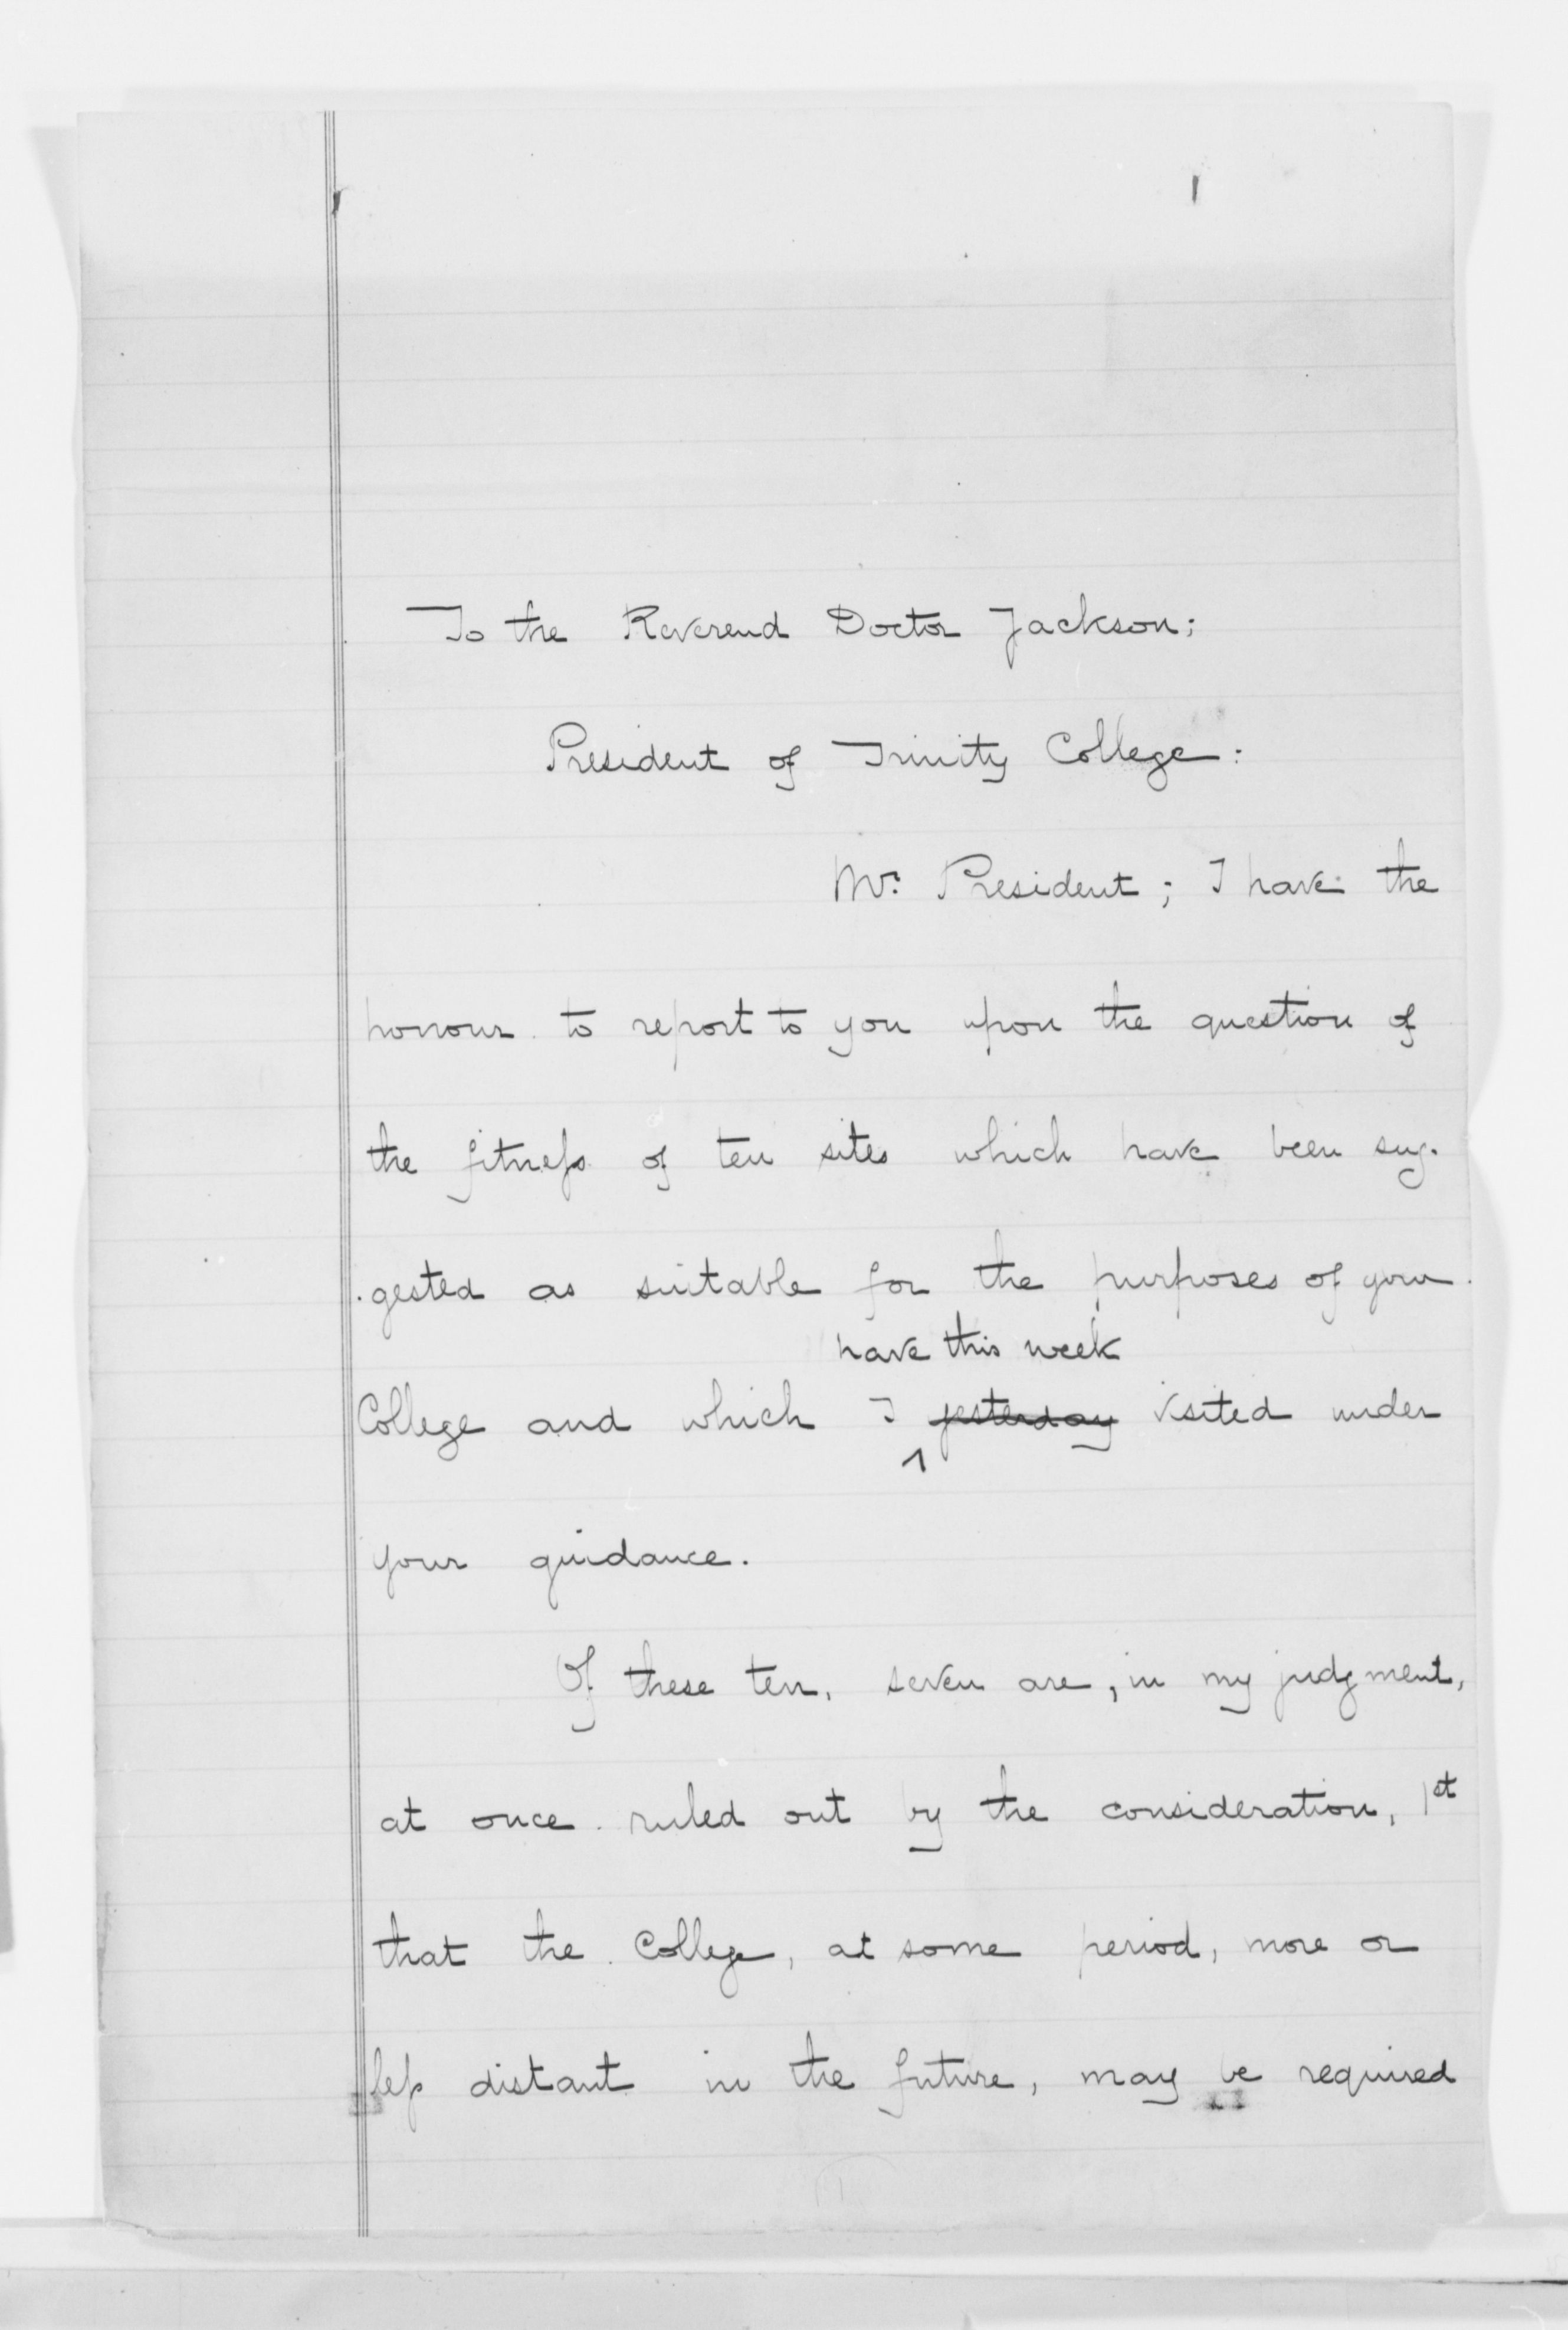 1
To the Reverend Doctor Jackson;
President of Trinity College:
Mr. President; I have the
honour to report to you upon the question of
the fitness of ten sites which have been sug-
gested as suitable for the purposes of your
have this week
College and which I ^ yesterday visited under
your guidance.
Of these ten, seven are, in my judgment,
at once ruled out by the consideration, 1st
that the College, at some period, more or
less distant in the future, may be required